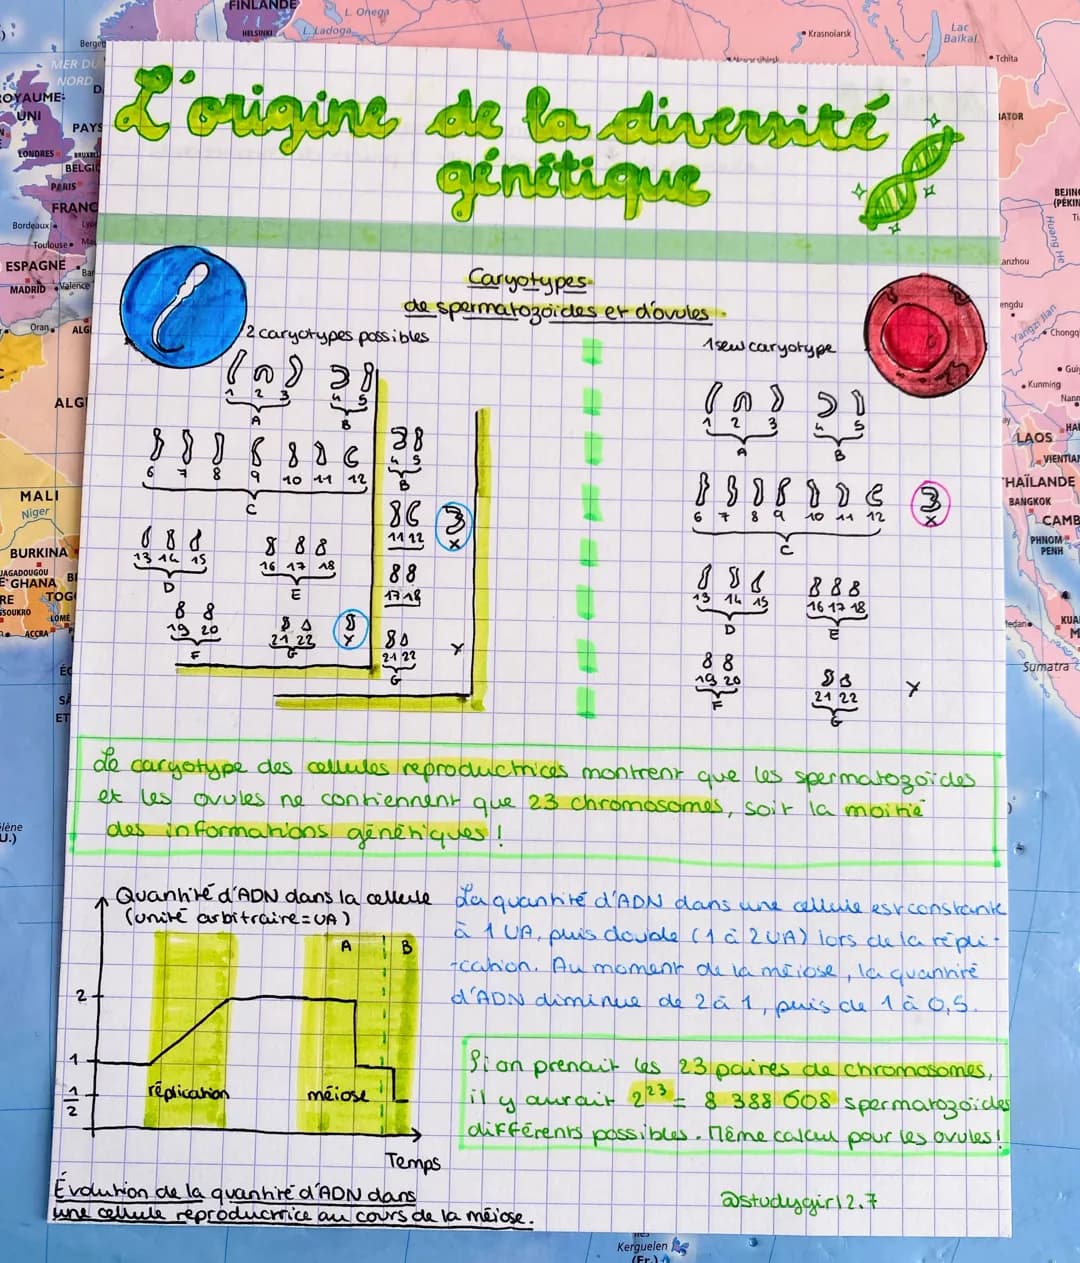 L'origine de la diversité
génétique
Caryotypes
de spermatozoïdes et d'ovules
2 caryotypes possibles
1 2 3
4 5
A
B
6 7 8 9 10 11 12
C
13 14 15
16 17 18
D
E
19 20
21 22
Y
F
G
4 5
B
11 12
X
17 18
21 22
Y
G
1 seul caryotype
1 2 3
4 5
A
B
6 7 8 9 10 11 12
X
C
13 14 15
16 17 18
D
E
19 20
21 22
Y
F
G
Le caryotype des cellules reproductrices montrent que les spermatozoïdes
et les ovules ne contiennent que 23 chromosomes, soit la moitié
des informations génétiques !
Quantité d'ADN dans la cellule
(unité arbitraire = UA)
A
B
2
1
1/2
réplication
méiose
Temps
Évolution de la quantité d'ADN dans
une cellule reproductrice au cours de la méiose.
La quantité d'ADN dans une cellule est constante
à 1 UA, puis double (1 à 2 UA) lors de la répli-
-cation. Au moment de la méiose, la quantité
d'ADN diminue de 2 à 1, puis de 1 à 0,5.
Si on prenait les 23 paires de chromosomes,
il y aurait 2²³ = 8 388 608 spermatozoïdes
différents possibles. Même calcul pour les ovules !
@studygirl2.7
FINLANDE
HELSINKI
L. Onega
L. Ladoga
Krasnoïarsk
Lac
Baïkal
Tchita
MER DU
NORD
ROYAUME-
UNI
LONDRES
PAYS
BELGI
PARIS
FRANC
Bordeaux
Toulouse
ESPAGNE
MADRID
Valence
Oran
ALG
ALG
MALI
Niger
BURKINA
GHANA
TOGO
LOMÉ
ACCRA
BEJIN
(PÉKIN
Huang He
Yangzi Jian
Chongq
Kunming
LAOS
VIENTIAN
THAÏLANDE
BANGKOK
CAMB
PHNOM
PENH
Medan
Sumatra
Kerguelen
(Fr.)